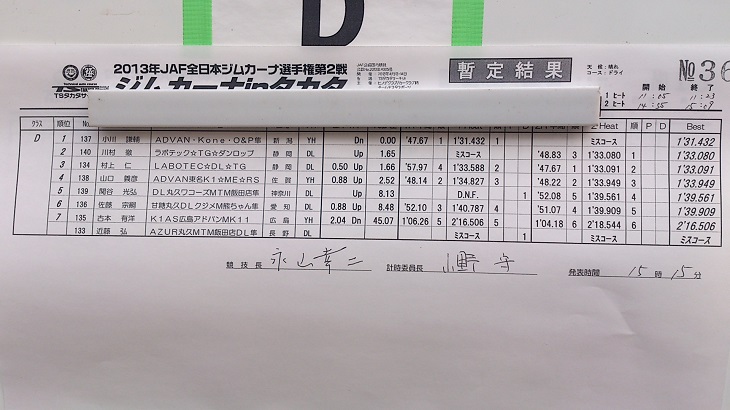 D
2013年JAF全日本ジムカーナ選手権第2戦
ジムカーナinタカタ
暫定結果
天候：晴れ
コース：ドライ
№36
開始 終了
1 ヒート 11:05 11:23
2 ヒート 14:55 15:09
クラス 順位 No. 2 Heat 順 P D Best
D 1 137 小川 ADVAN・Kone・O&P隼 新潟 YH Dn 0.00 '47.67 1 1'31.432 1 ミスコース 1'31.432
2 140 川村 徹 ラボテック☆TG☆ダンロップ 静岡 DL Up 1.65 ミスコース '48.83 3 1'33.080 1 1'33.080
3 134 村上 仁 LABOTEC☆DL☆TG 静岡 DL 0.50 Up 1.66 '57.97 4 1'33.588 2 '47.67 1 1'33.091 2 1'33.091
4 138 山口 ADVAN東名K1☆ME☆RS 佐賀 YH 0.88 Up 2.52 '48.14 2 1'34.827 3 '48.22 2 1'33.949 3 1'33.949
5 139 関谷 光弘 DL丸久ワコーズMTM飯田店隼 神奈川 DL Up 8.13 D.N.F. 1 '52.08 5 1'39.561 4 1'39.561
6 136 佐藤 宗嗣 甘糖丸久DLクジメM熊ちゃん隼 愛知 DL 0.88 Up 8.48 '52.10 3 1'40.787 4 '51.07 4 1'39.909 5 1'39.909
7 135 古本 有洋 K1AS広島アドバンMK11 広島 YH 2.04 Dn 45.07 1'06.26 5 2'16.506 5 1'04.18 6 2'18.544 6 2'16.506
133 近藤 弘 AZUR丸久MTM飯田店DL隼 長野 DL ミスコース 1 ミスコース
競技長 計時委員長 発表時間 15 時 15 分